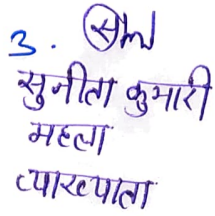 3.
सुनीता कुमारी
महला
व्याख्याता